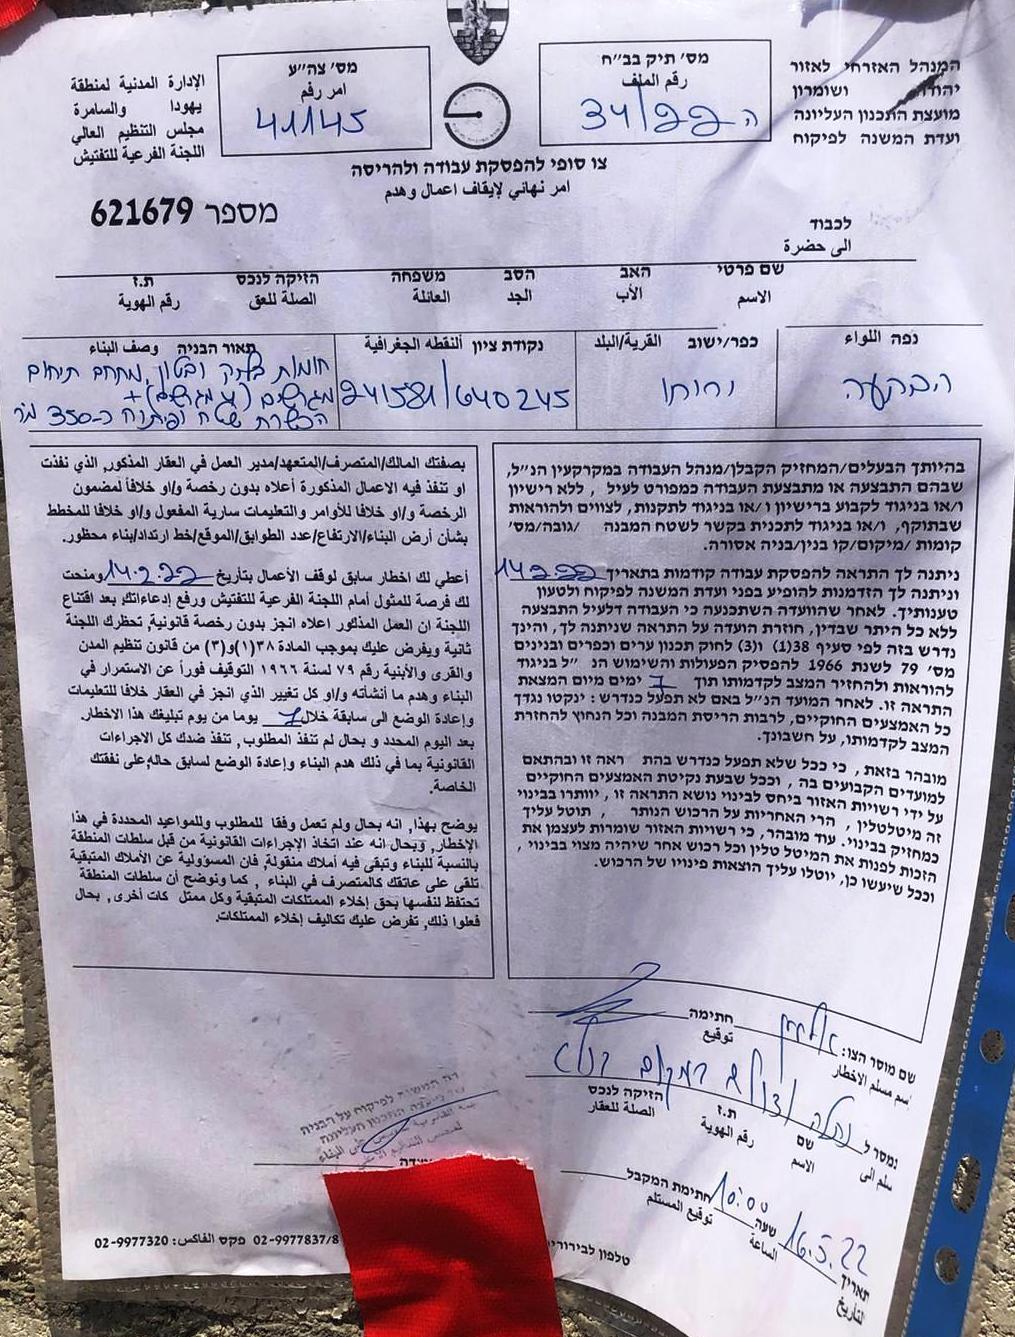 המנהל האזרחי לאזור
יהודה ושומרון
מועצת התכנון העליונה
ועדת המשנה לפיקוח
מס' תיק בב"ח
رقم الملف
ה 34/22
מס' צה"ע
امر رقم
41145
الإدارة المدنية لمنطقة
يهودا والسامرة
مجلس التنظيم العالي
اللجنة الفرعية للتفتيش
צו סופי להפסקת עבודה ולהריסה
امر نهائي لإيقاف اعمال وهدم
מספר 621679
לכבוד
الى حضرة
שם פרטי האב הסב משפחה הזיקה לנכס ת.ז
الاسم الأب الجد العائلة الصلة للعق رقم الهوية
נפה اللواء
הבקעה
כפר/ישוב القرية/البلد
נקודת ציון ألنقطه الجغرافية
241581/640245
תאור הבניה وصف البناء
חומות בלוק ובטון, מתחם תיחום
מגרשים
הכשרת שטח ופיתוח כ-350 מ"ר
בהיותך הבעלים/המחזיק הקבלן/מנהל העבודה במקרקעין הנ"ל,
שבהם התבצעה או מתבצעת העבודה כמפורט לעיל, ללא רישיון
ו/או בניגוד לקבוע ברישיון ו/או בניגוד לתקנות, לצווים ולהוראות
שבתוקף, ו/או בניגוד לתכנית בקשר לשטח המבנה /גובה/מס'
קומות /מיקום/קו בנין/בניה אסורה.
ניתנה לך התראה להפסקת עבודה קודמות בתאריך 14.2.22
וניתנה לך הזדמנות להופיע בפני ועדת המשנה לפיקוח ולטעון
טענותיך. לאחר שהוועדה השתכנעה כי העבודה דלעיל התבצעה
ללא כל היתר שבדין, חוזרת הועדה על התראה שניתנה לך, והינך
נדרש בזה לפי סעיף 38(1) ו(3) לחוק תכנון ערים וכפרים ובניינים
מס' 79 לשנת 1966 להפסיק הפעולות והשימוש הנ "ל בניגוד
להוראות ולהחזיר המצב לקדמותו תוך 7 ימים מיום המצאת
התראה זו. לאחר המועד הנ"ל באם לא תפעל כנדרש : ינקטו נגדך
כל האמצעים החוקיים, לרבות הריסת המבנה וכל הנחוץ להחזרת
המצב לקדמותו, על חשבונך.
מובהר בזאת, כי ככל שלא תפעל כנדרש בהת ראה זו ובהתאם
למועדים הקבועים בה, וככל שבעת נקיטת האמצעים החוקיים
על ידי רשויות האזור ביחס לבינוי נושא התראה זו, יוותרו בבינוי
זה מיטלטלין, הרי האחריות על הרכוש הנותר, תוטל עליך
כמחזיק בבינוי. עוד מובהר, כי רשויות האזור שומרות לעצמן את
הזכות לפנות את המיטל טלין וכל רכוש אחר שיהיה מצוי בבינוי,
וככל שיעשו כן, יוטלו עליך הוצאות פינויו של הרכוש.
بصفتك المالك/المتصرف/المتعهد/مدير العمل في العقار المذكور, الذي نفذت
او تنفذ فيه الاعمال المذكورة أعلاه بدون رخصة و/او خلافاً لمضمون
الرخصة و/او خلافا للأوامر والتعليمات سارية المفعول و/او خلافا للمخطط
بشأن أرض البناء/الارتفاع/عدد الطوابق/الموقع/خط ارتداد/بناء محظور.
أعطي لك اخطار سابق لوقف الأعمال بتأريخ 14.2.22 ومنحت
لك فرصة للمثول أمام اللجنة الفرعية للتفتيش ورفع إدعاءاتك, بعد اقتناع
اللجنة ان العمل المذكور اعلاه انجز بدون رخصة قانونية, تحظرك اللجنة
ثانية ويفرض عليك بموجب المادة ٣٨(١)و(٣) من قانون تنظيم المدن
والقرى والأبنية رقم ٧٩ لسنة ١٩٦٦ التوقيف فوراً عن الاستمرار في
البناء وهدم ما أنشأته و/او كل تغيير الذي انجز في العقار خلافا للتعليمات
وإعادة الوضع الى سابقة خلال 7 يوما من يوم تبليغك هذا الاخطار.
بعد اليوم المحدد و بحال لم تنفذ المطلوب, تنفذ ضدك كل الاجراءات
القانونية بما في ذلك هدم البناء وإعادة الوضع لسابق حاله, على نفقتك
الخاصة.
يوضح بهذا, انه بحال ولم تعمل وفقا للمطلوب وللمواعيد المحددة في هذا
الإخطار, وبحال انه عند اتخاذ الإجراءات القانونية من قبل سلطات المنطقة
بالنسبة للبناء وتبقى فيه أملاك منقولة, فان المسؤولية عن الأملاك المتبقية
تلقى على عاتقك كالمتصرف في البناء, كما ونوضح أن سلطات المنطقة
تحتفظ لنفسها بحق إخلاء الممتلكات المتبقية وكل ممتل كات أخرى, بحال
فعلوا ذلك, تفرض عليك تكاليف إخلاء الممتلكات.
שם מוסר הצו: חתימה
إسم مسلم الاخطار توقيع
נמסר ל שם ת.ז הזיקה לנכס
سلم الى الاسم رقم الهوية الصلة للعقار
תאריך 16.5.22 שעה 10:00 חתימת המקבל
التاريخ الساعة توقيع المستلم
טלפון לבירורי
02-9977837/8 פקס الفاكس: 02-9977320